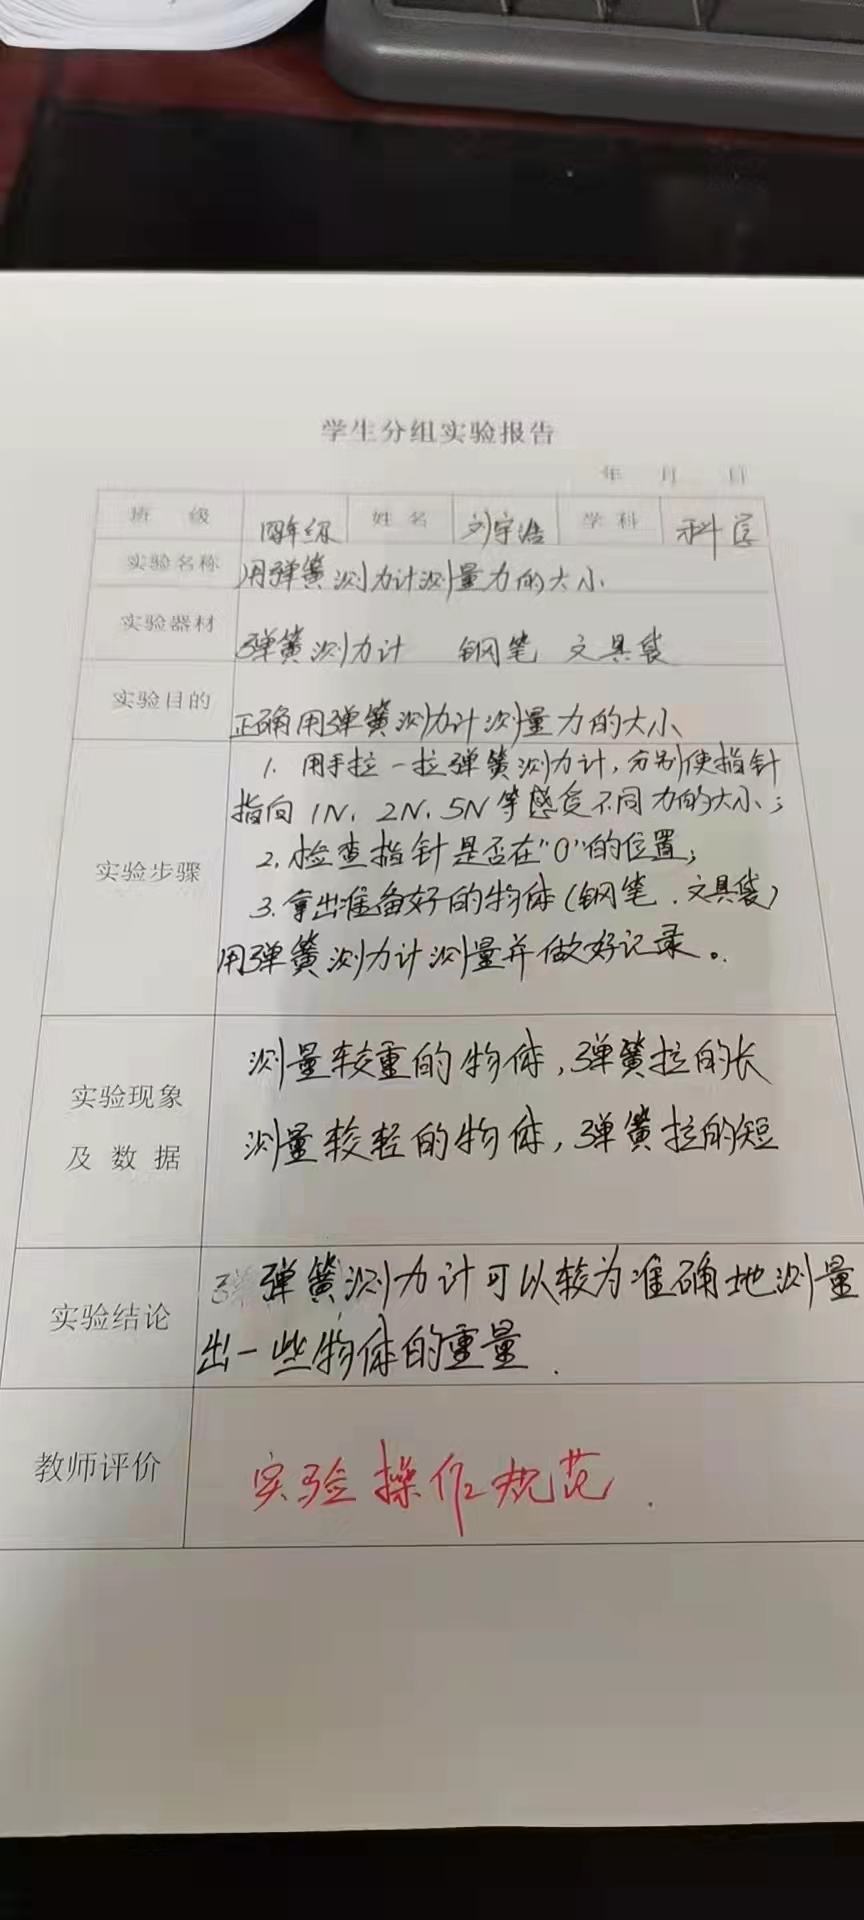 学生分组实验报告
年 月 日
班 级 四年级 姓名 刘宇浩 学科 科学
实验名称 用弹簧测力计测量力的大小
实验器材 弹簧测力计 钢笔 文具袋
实验目的 正确用弹簧测力计测量力的大小
实验步骤
1. 用手拉一拉弹簧测力计，分别使指针
指向1N、2N、5N等感受不同力的大小；
2. 检查指针是否在“0”的位置；
3. 拿出准备好的物体（钢笔、文具袋）
用弹簧测力计测量并做好记录。
实验现象
及数据
测量较重的物体，弹簧拉的长
测量较轻的物体，弹簧拉的短
实验结论
弹簧测力计可以较为准确地测量
出一些物体的重量.
教师评价 实验操作规范.